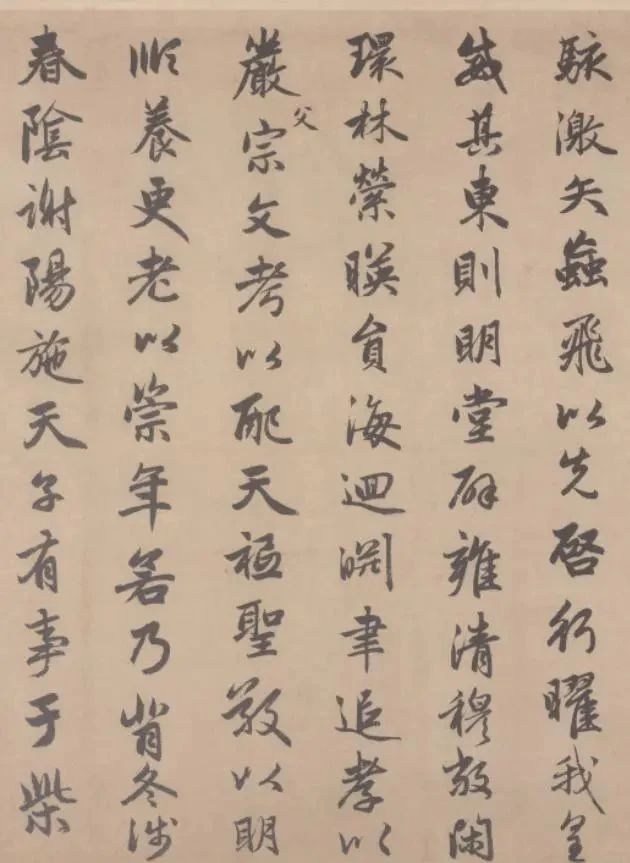 駭激矢蝱飛以先啓行曜我皇
威其東則明堂辟雍清穆敞閑
環林縈暎員海迴淵聿追孝以
嚴父宗文考以配天祗聖敬以明
順養更老以崇年若乃背冬涉
春陰謝陽施天子有事于柴